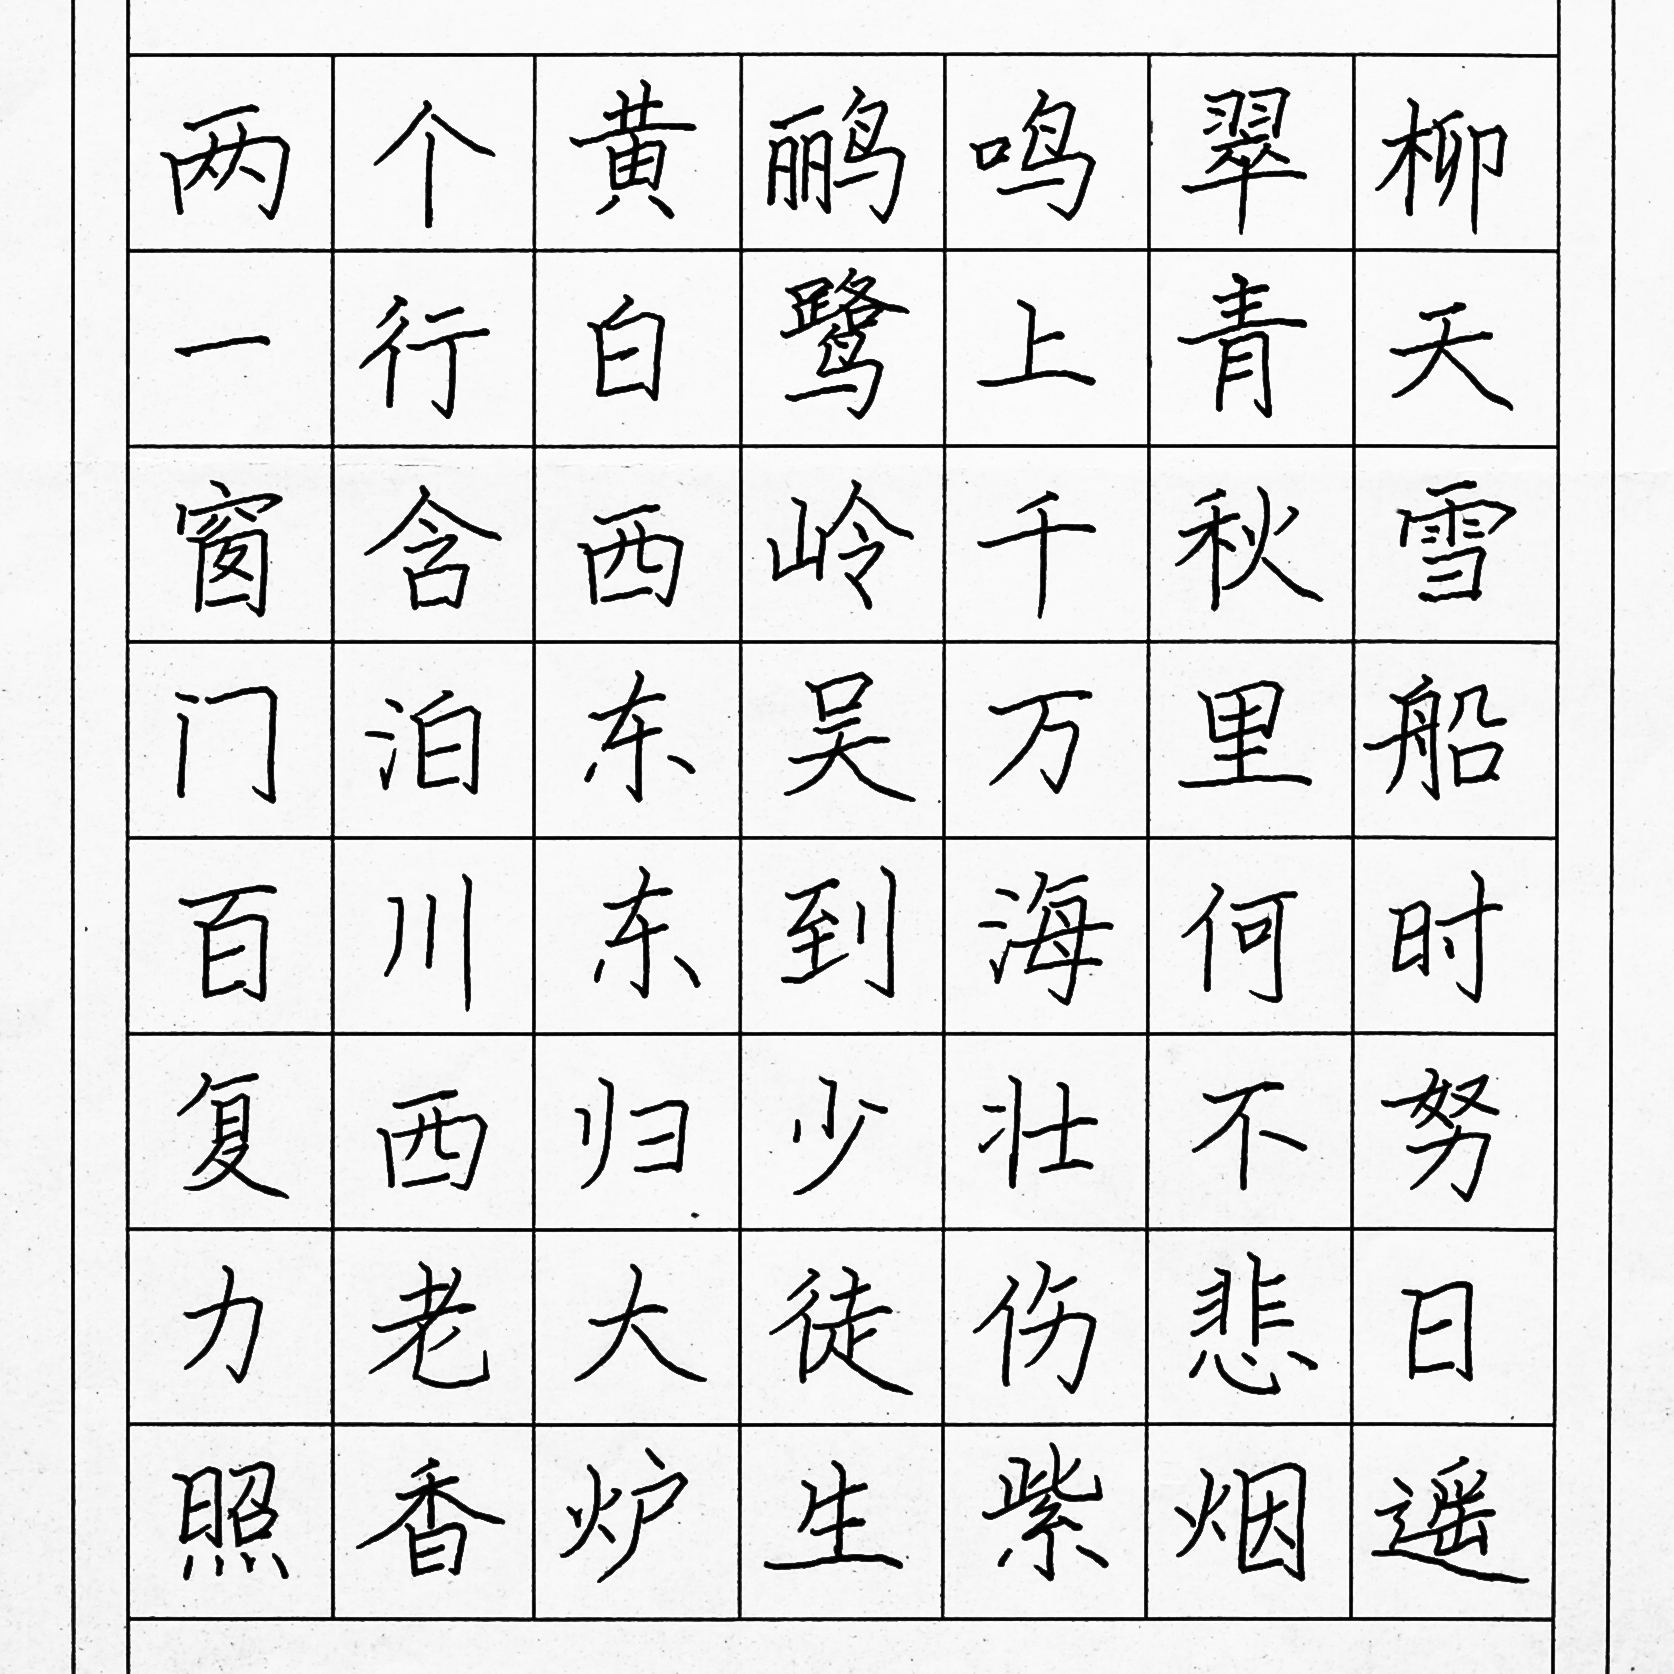 两个黄鹂鸣翠柳
一行白鹭上青天
窗含西岭千秋雪
门泊东吴万里船
百川东到海何时
复西归少壮不努
力老大徒伤悲日
照香炉生紫烟遥